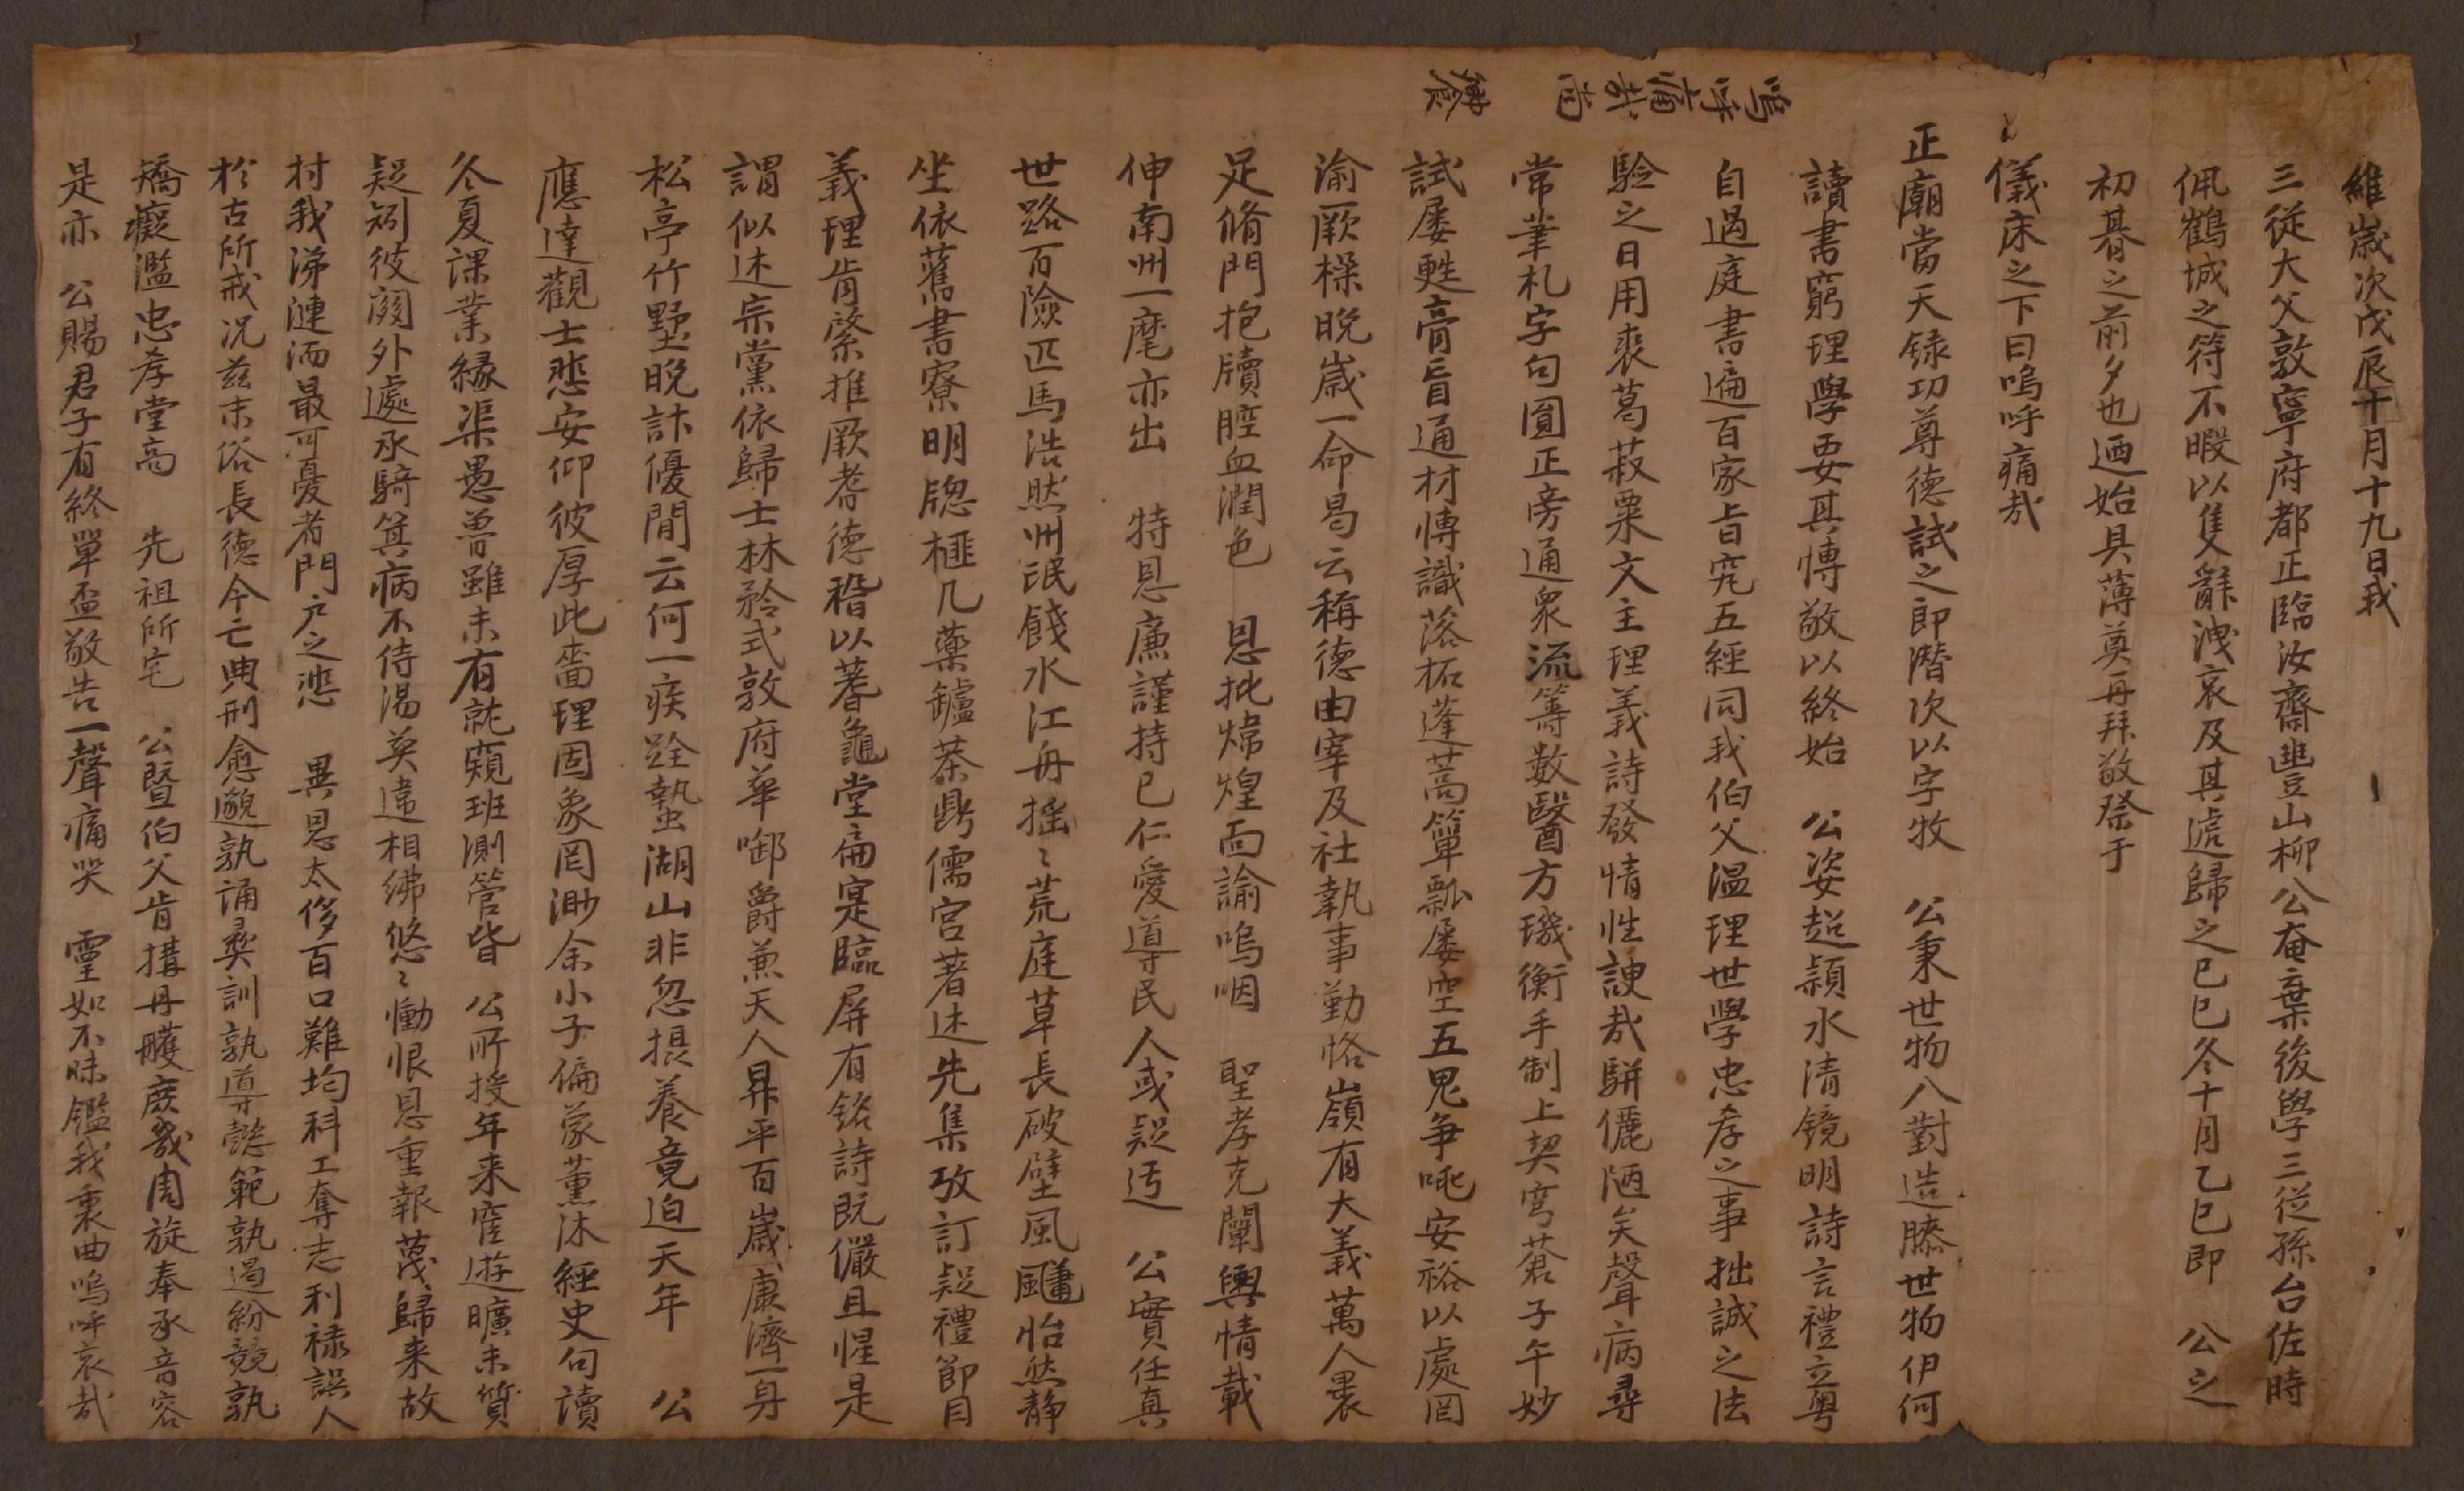 維歲次戊辰十月十九日我
三從大父敦寧府都正臨汝齋豐山柳公奄棄後學三從孫台佐時
佩鶴城之符不暇以隻辭洩哀及其遞歸之己巳冬十月乙巳即 公之
初朞之前夕也迺始具薄奠再拜敬祭于
儀床之下曰嗚呼痛哉
正廟當天錄功尊德試之即潛次以字牧 公秉世物八對造膝世物伊何
讀書窮理學要其慱敬以終始 公姿超穎水清鏡明詩言禮立粵
自過庭書遍百家旨究五經同我伯父溫理世學忠孝之事拙誠之法
驗之日用裘葛菽粟文主理義詩發情性諛哉騈儷陋矣聲病尋
常華札字句圓正旁通衆流籌數醫方璣衡手制上契穹蒼子午妙
試屢甦膏盲通材慱識落拓蓬蒿簞瓢屢空五鬼爭咤安裕以處罔
渝厥操晩歲一命曷云稱德由宰及社執事勤恪嶺有大義萬人褁
足脩門抱牘腔血潤色 恩批煒煌面諭嗚咽 聖孝克闡輿情載
伸南州一麾亦出 特恩廉謹持己仁愛導民人或疑迃 公實任真
世路百險匹馬浩然州氓餞水江舟搖〻荒庭草長破壁風飀怡然静
坐依舊書寮明牕榧几藥鑪茶鼎儒宮著述先集攷訂疑禮節目
義理肯綮推厥耆德稽以蓍龜堂扁寔臨屏有銘詩旣儼且惺是
謂似述宗黨依歸士林矜式敦府華啣爵兼天人昇平百歲康濟一身
松亭竹墅晩計優閒云何一疾跧蟄湖山非忽損養竟迫天年 公
應達觀士悲安仰彼厚此嗇理固象罔渺余小子偏蒙薰沐經史句讀
冬夏課業緣渠愚魯雖未有就窺班測管皆 公所授年来宦遊曠未質
疑矧彼閼外處永騎箕病不侍湯奠違相紼悠〻慟恨恩重報蔑歸来故
村我涕漣洏最可憂者門户之悲 異恩太侈百口難均科工奪志利祿誤人
於古所戒况玆末俗長德今亡典刑愈邈孰誦彛訓孰導懿範孰遏紛競孰
矯癡濫忠孝堂高 先祖所宅 公曁伯父肯搆丹雘庶幾周旋奉承音容
是亦 公賜君子有終單盃敬告一聲痛哭 靈如不昧鑑我衷曲嗚呼哀哉
嗚呼痛哉 尙
饗